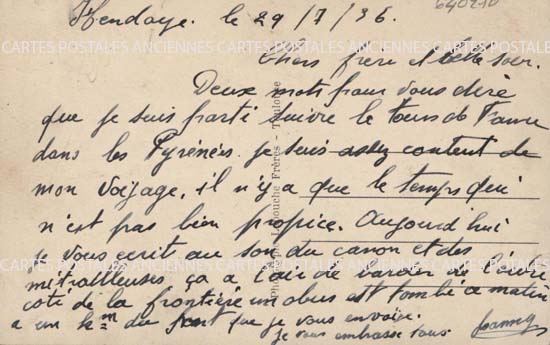 640210
Hendaye. le 29/7/36.
Chers frère et belle sœur.
Deux mots pour vous dire
que je suis parti suivre le tour de France
dans les Pyrénées. je suis assez content de
mon voyage, il n'y a que le temps qui
n'est pas bien propice. Aujourd'hui
je vous ecrit au son du canon et des
mitrailleuses, ça a l'air de de l'autre
coté de la frontière un obus est tombé ce matin
a un km du pont que je vous envoie.
je vous embrasse tous.
CARTES POSTALES ANCIENNES CARTES POSTALES ANCIENNES
Labouche Frères - Toulouse